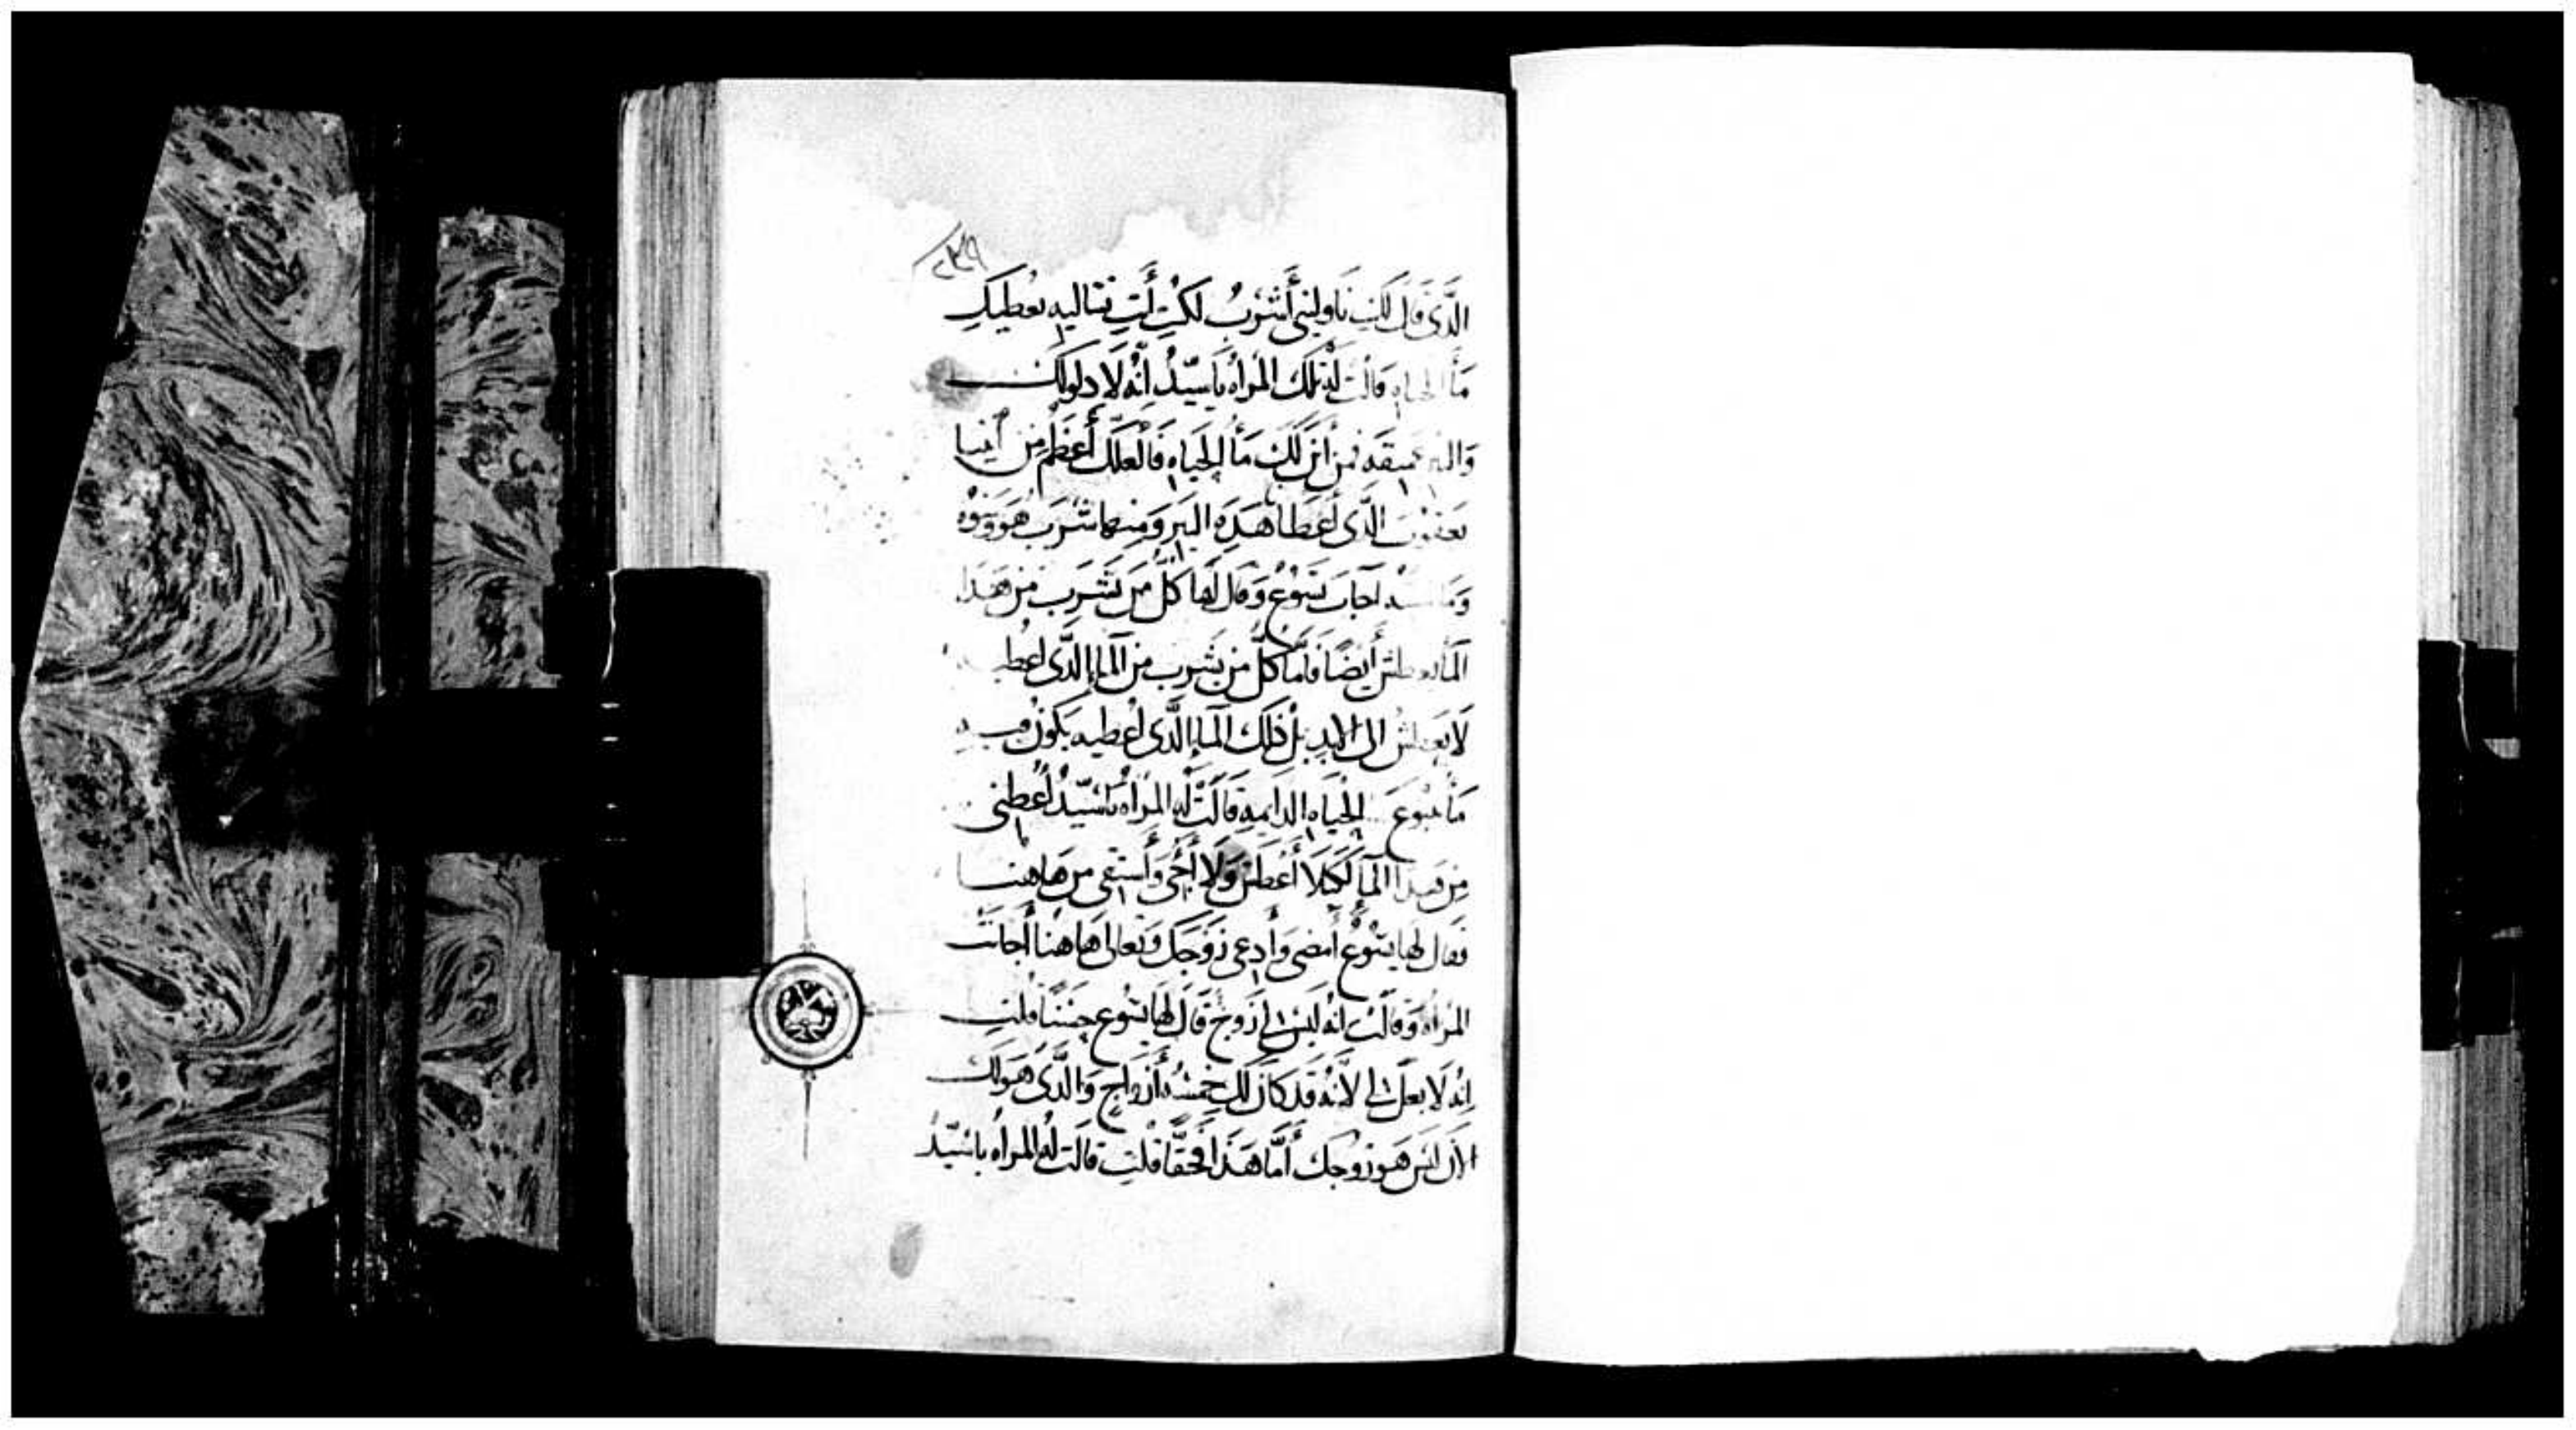 ٢٤٩
الَّذى قَالَ لَكِ نَاولينى أَشْرَبُ لَكُنتِ أَنتِ تسَاليه يعُطيكِ
مَأَ الحياهِ قالت لهُ تلك المراه ياسيّدُ انّهُ لَا دلولك
وَالبير عميقَه فمن اين لَكَ مَأُ الحَياهِ فَالعَلك أَعظَم مِن أَبينا
يَعقوب الَّذى أَعطَانَا هَذِه البير وَمِنها شَربَ هُوَ وَبَنوُه
وَمَا اَجابَ يَسُوعُ وَقَال لَها كُلّ مَن يَشرَب من هَذا
المأ يعطش أَيضًا فَاَمّا كُلّ من يَشرب من المأِ الَّذى اعطيه
لَا يَعطش الى الابد بَل ذلك المأِ الَّذى أُعطيه يَكون فيه
مَأ ينبوع الحياهِ الدايمه قَالَتْ لَه المراه يَاسَيّدُ أعُطِنى
مِن هذا المأِ لكَيلَا أَعطش وَلَا أَجى وَأَستَقى من هَاهُنا
فقال لها يَسُوعُ أمضى وَأدعى زَوجَك وَتعالى هَاهنا أَجابَت
المراه وَقالت انهُ لَيس لى زَوج قَالَ لَها يَسُوع حَسَنًا قلتِ
اِنه لَا بَعل لى لاَنهُ قَد كان لك خمسَه أَزواج وَالَّذى هوَ لَك
الان لَيس هَو زَوجك أَمَّا هَذا فَحَقًّا قلتِ قَالت له المراه ياسَيّدُ